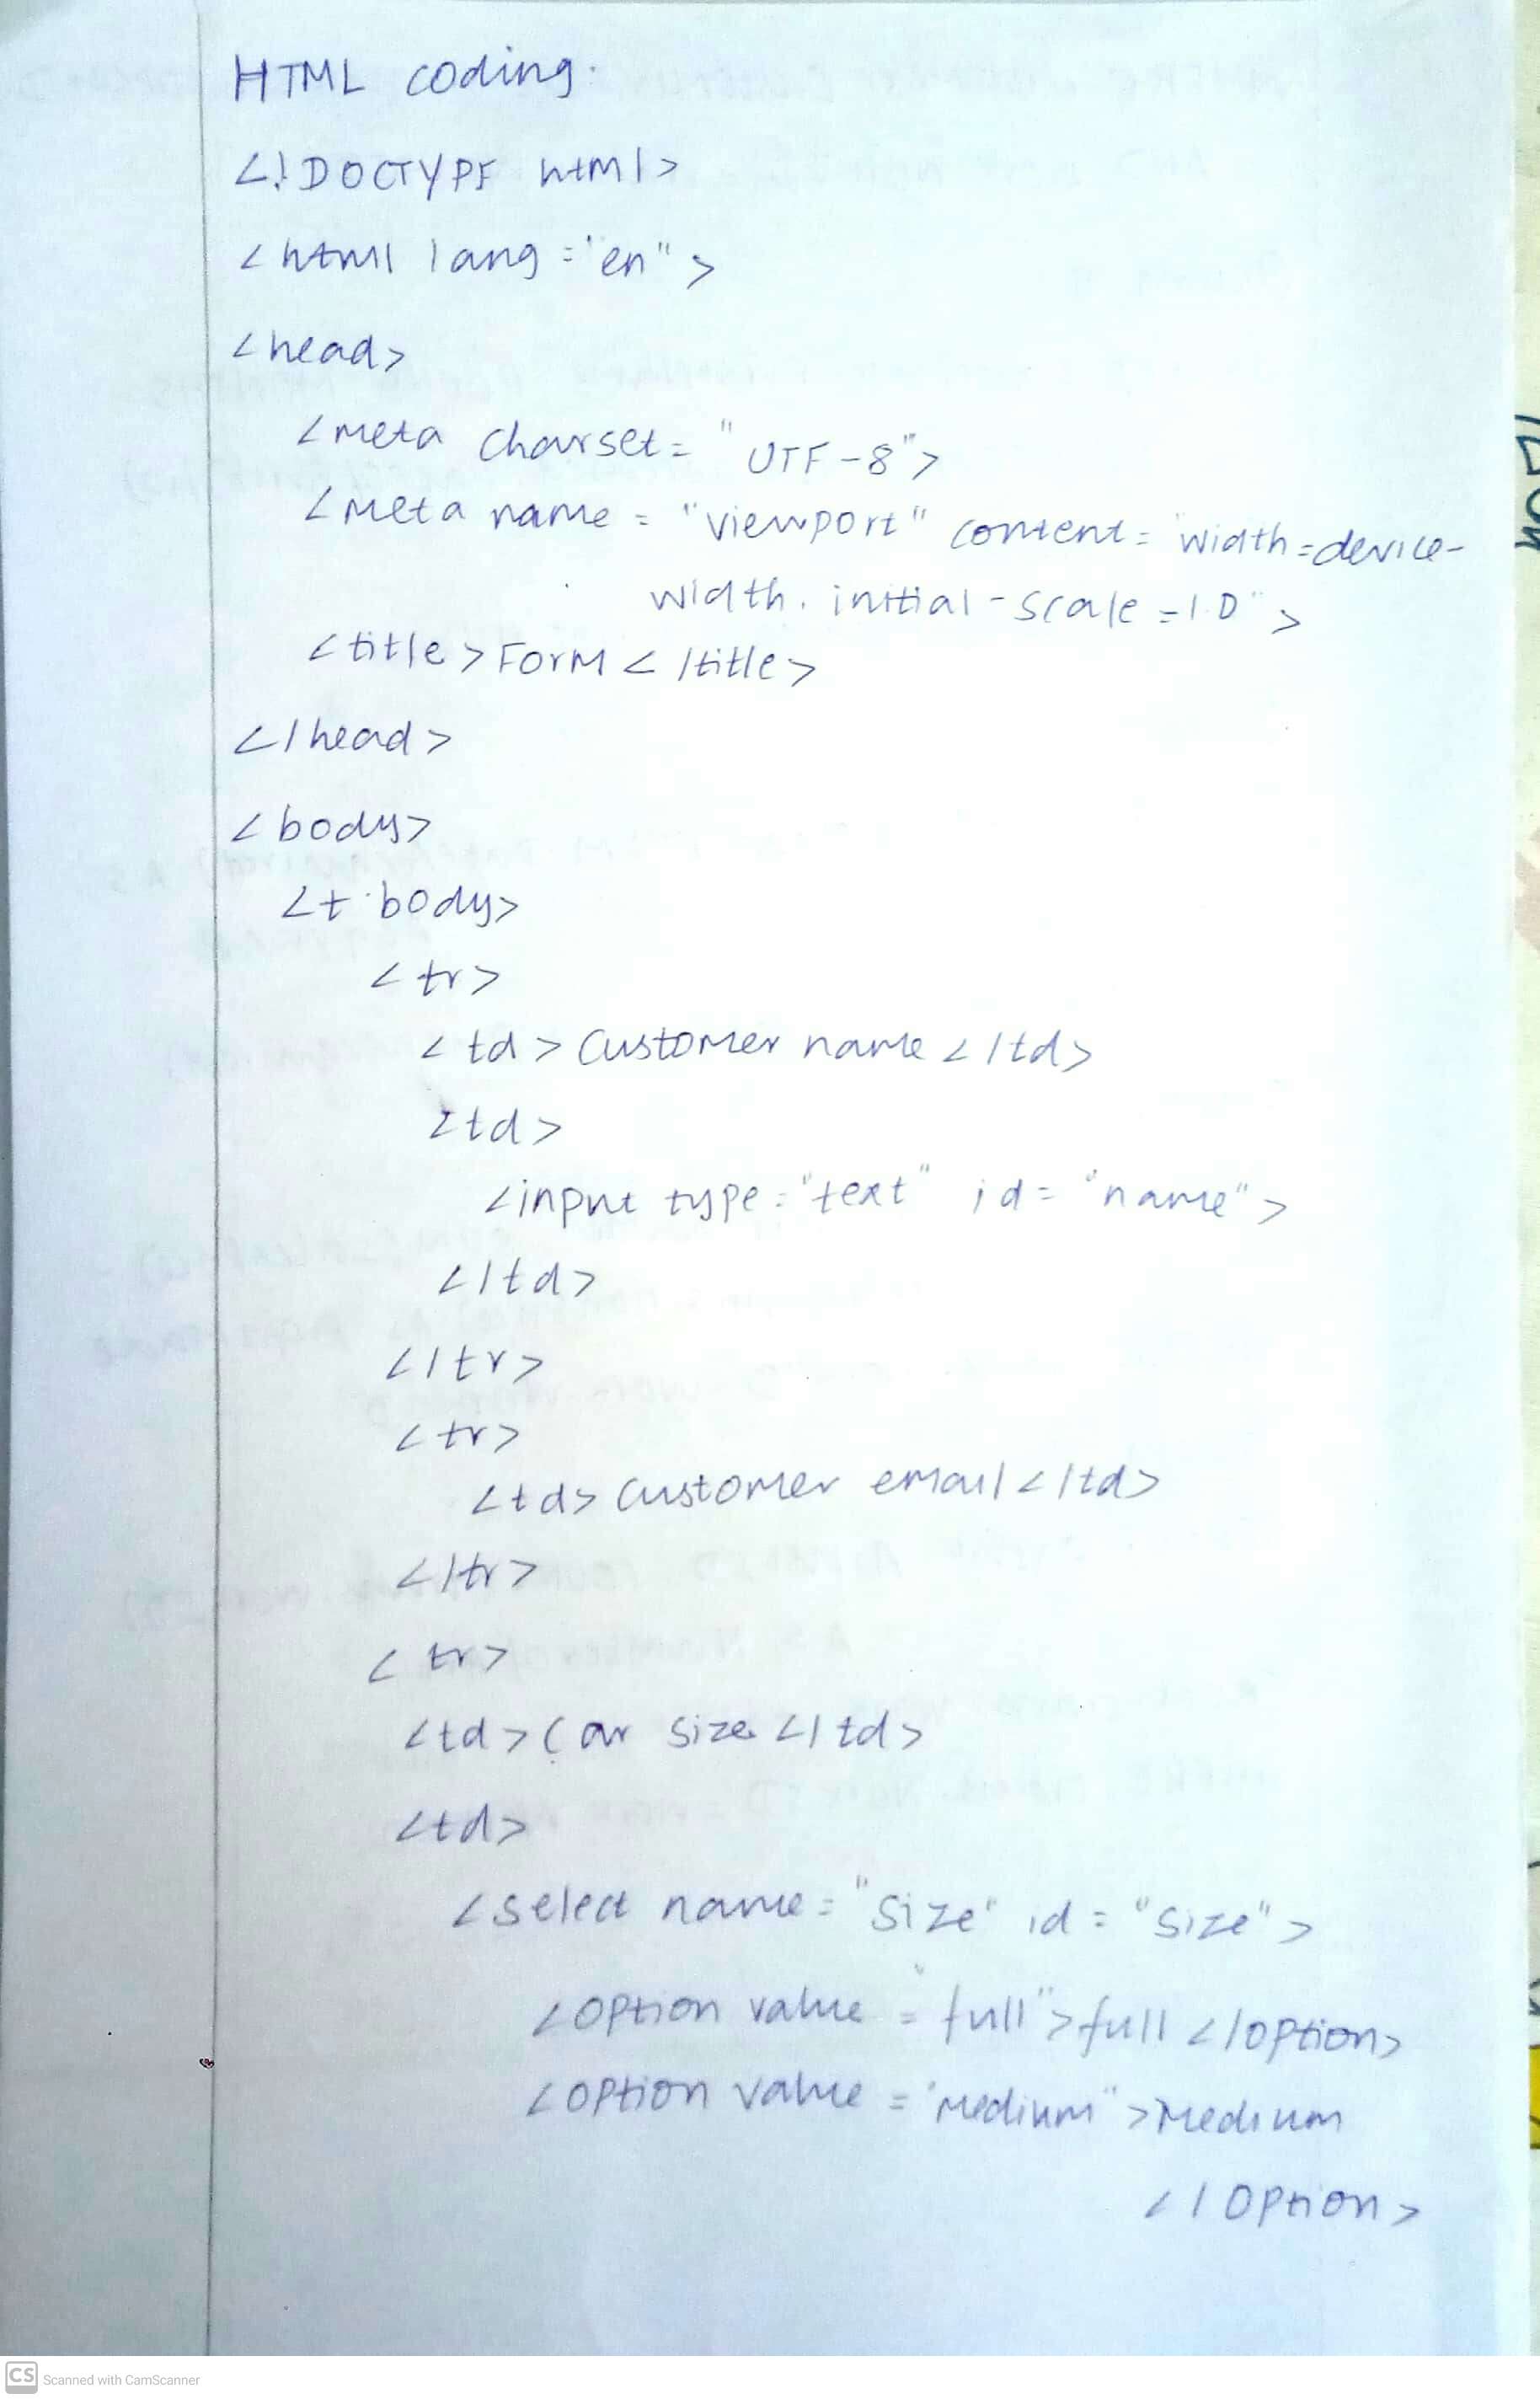 HTML coding:
<!DOCTYPE html>
<html lang="en">
<head>
<meta charset= "UTF-8">
<meta name = "viewport" content= "width=device-
width. initial-scale=1.0">
<title>Form</title>
</head>
<body>
<tbody>
<tr>
<td>Customer name</td>
<td>
<input type="text" id="name">
</td>
</tr>
<tr>
<td>Customer email</td>
</tr>
<tr>
<td>Car size</td>
<td>
<select name="size" id="size">
<option value="full">full</option>
<option value="medium">Medium
</option>
CS Scanned with CamScanner